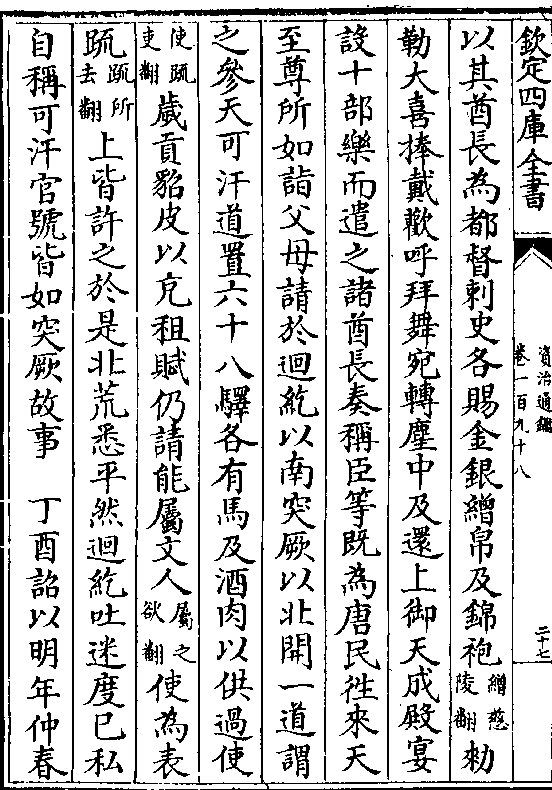 欽定四庫全書
資治通鑑
卷一百九十八
二十七
以其酋長為都督刺史各賜金銀繒帛及錦袍繒慈陵翻勑
勒大喜捧戴歡呼拜舞宛轉塵中及還上御天成殿宴
設十部樂而遣之諸酋長奏稱臣等既為唐民往來天
至尊所如詣父母請於迴紇以南突厥以北開一道謂
之參天可汗道置六十八驛各有馬及酒肉以供過使
使疏吏翻歲貢貂皮以充租賦仍請能屬文人屬之欲翻使為表
疏疏所去翻上皆許之於是北荒悉平然迴紇吐迷度已私
自稱可汗官號皆如突厥故事 丁酉詔以明年仲春